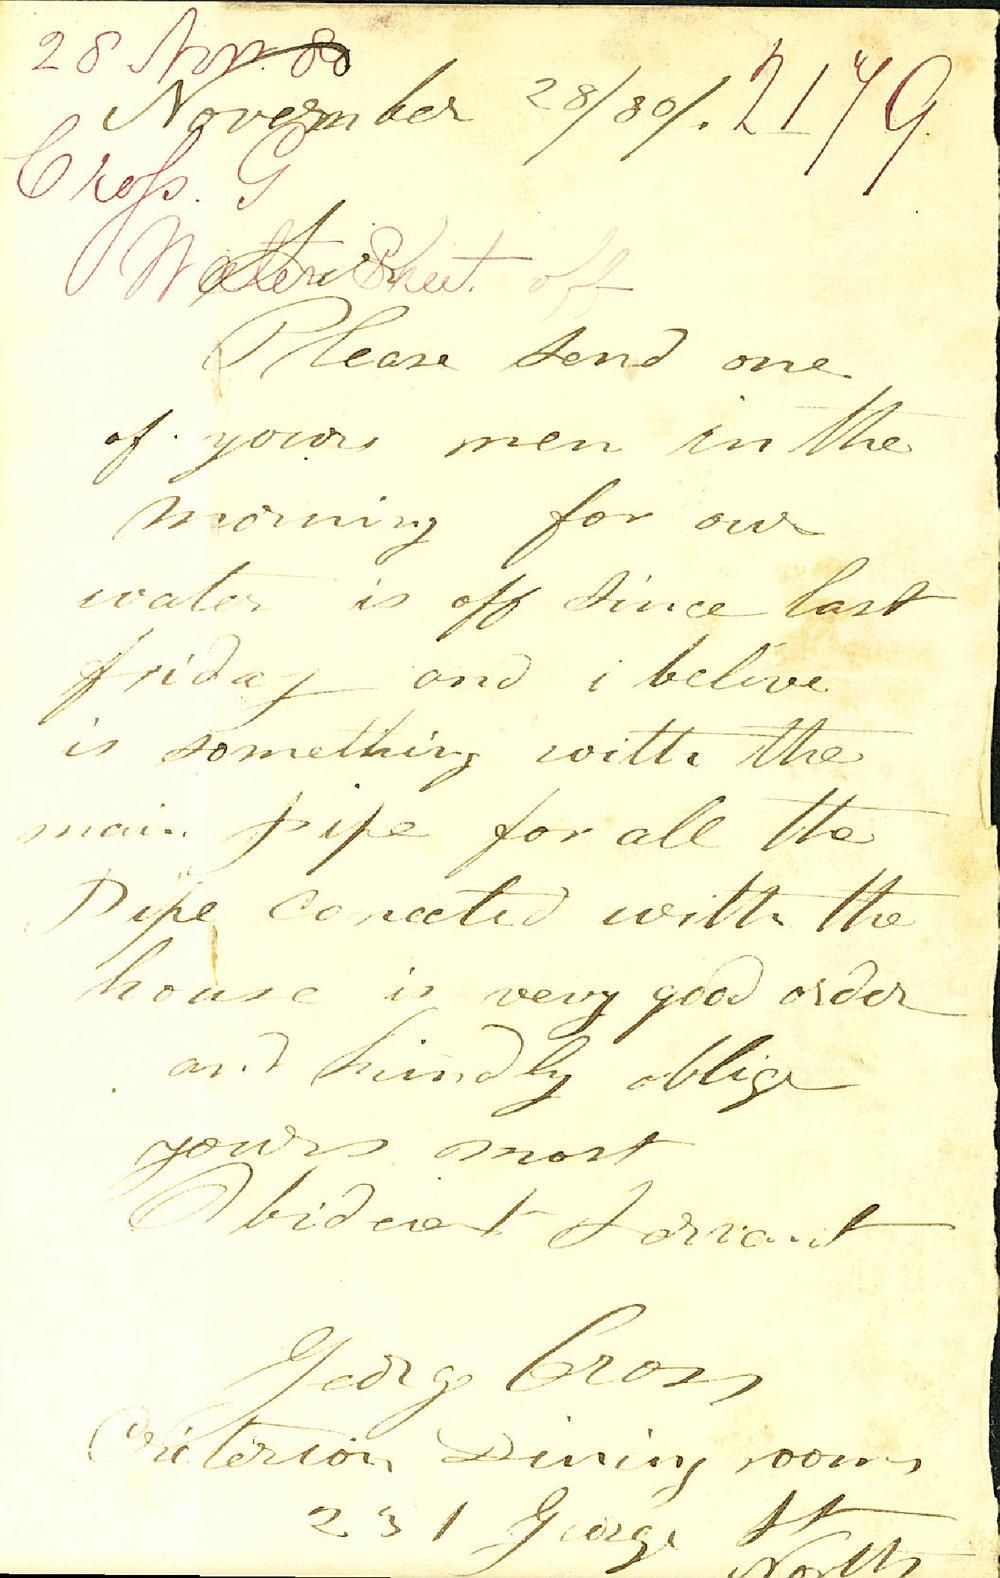 28 Nov. 80
November 28/80/. 2179
Cross. G
Sir
Water Shut off
Please send one
of yours men in the
morning for our
water is off since last
friday and i belive
is something with the
main pipe for all the
Pipe conected with the
house is very good order
and kindly oblige
yours most
Obideient Servant
George Cross
Criterion Dining rooms
231 George St
North